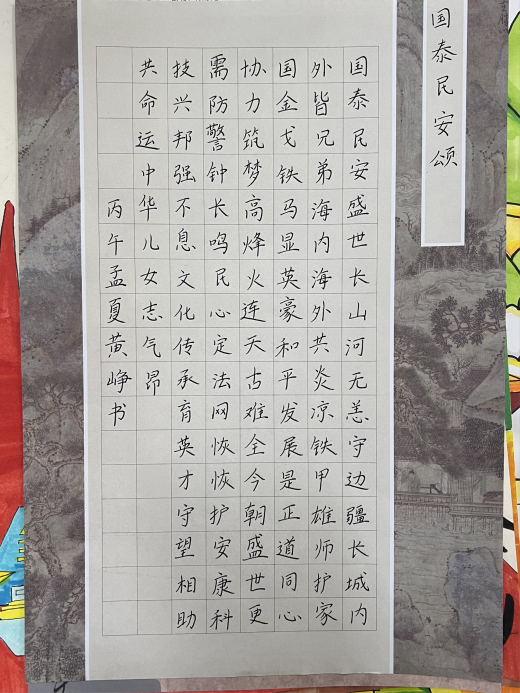 国泰民安颂
国泰民安盛世长山河无恙守边疆长城内
外皆兄弟海内海外共炎凉铁甲雄师护家
国金戈铁马显英豪和平发展是正道同心
协力筑梦高烽火连天古难全今朝盛世更
需防警钟长鸣民心定法网恢恢护安康科
技兴邦强不息文化传承育英才守望相助
共命运中华儿女志气昂
丙午孟夏黄峥书